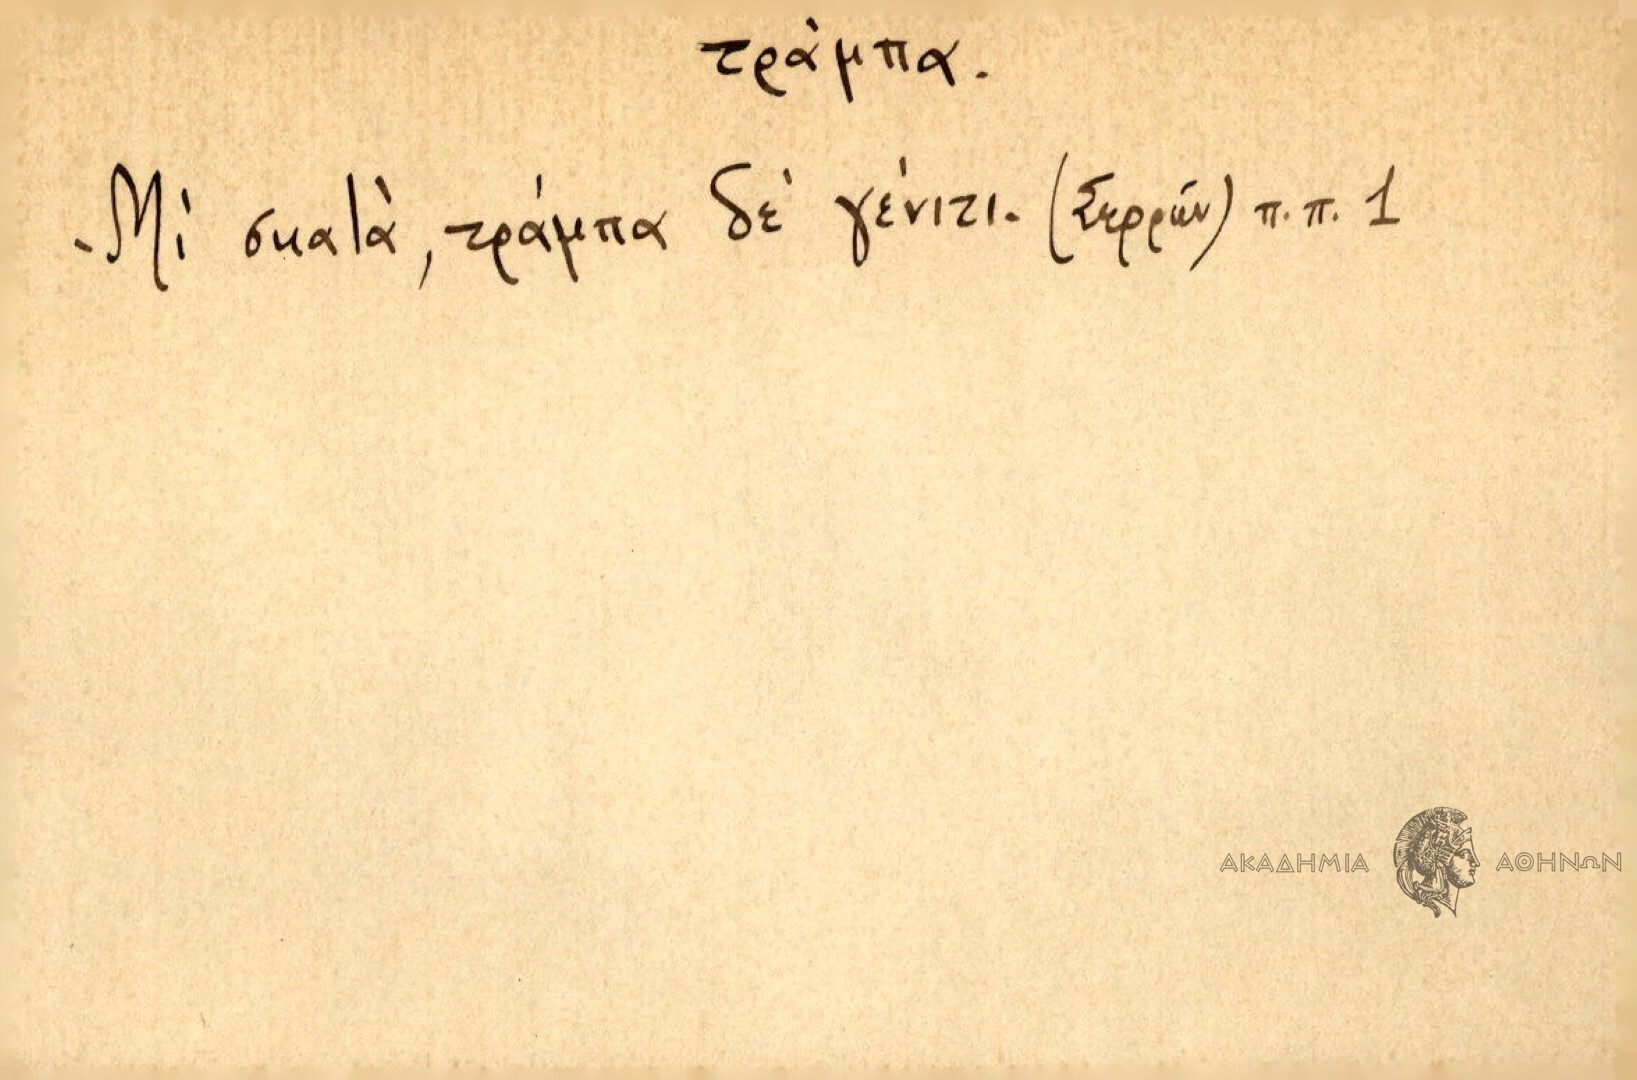 τράμπα.
-Μὶ σκατὰ, τράμπα δὲ γένιτι. (Σερρῶν) π.π. 1
ΑΚΑΔΗΜΙΑ ΑΘΗΝΩΝ